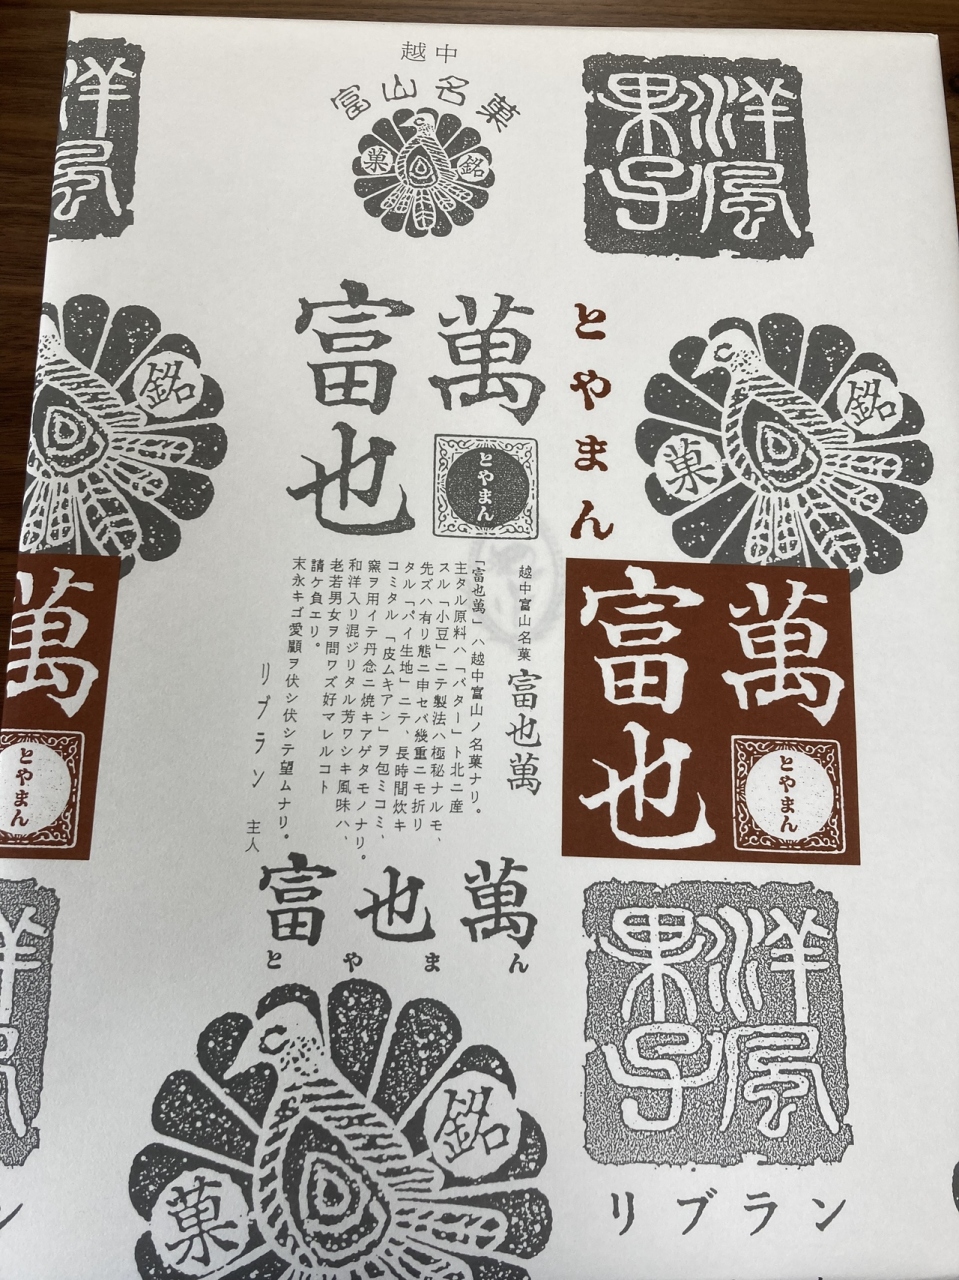 洋風
越中
富山名菓
銘菓
洋風菓子
銘
富也萬
とやまん
とやまん
銘菓
越中富山名菓 富也萬
「富也萬」ハ越中富山ノ名菓ナリ。
主タル原料ハ「バター」ト北ニ産
スル「小豆」ニテ製法ハ極秘ナルモ、
先ズハ有リ態ニ申セバ幾重ニモ折リ
タル「パイ生地」ニテ、長時間炊キ
コミタル「皮ムキアン」ヲ包ミコミ、
窯ヲ用イテ丹念ニ焼キアゲタモノナリ。
和洋入リ混ジリタル芳ワシキ風味ハ、
老若男女ヲ問ワズ好マレルコト
請ケ負エリ。
末永キゴ愛顧ヲ伏シ伏シテ望ムナリ。
リブラン 主人
萬
とやまん
富也萬
とやまん
富也萬
とやまん
洋風
洋風菓子
銘菓
リブラン
ン